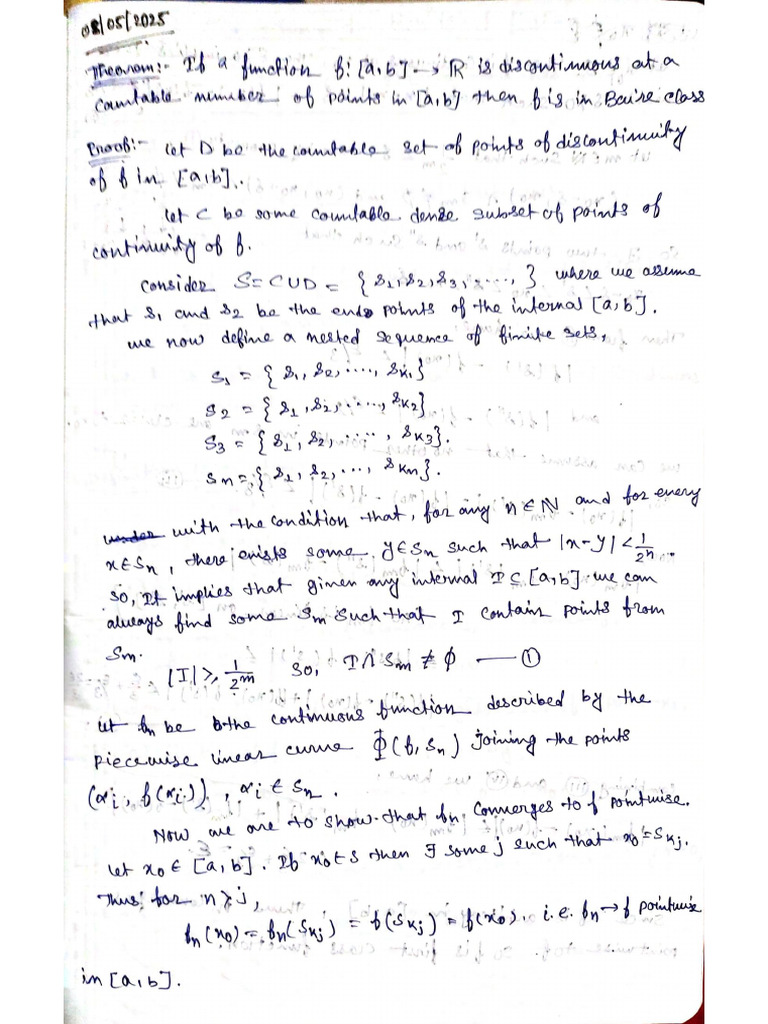 08/05/2025
Theorem:- If a function f: [a,b] → R is discontinuous at a
countable number of points in [a,b] then f is in Baire class
Proof:- Let D be the countable set of points of discontinuity
of f in [a,b].
Let C be some countable dense subset of points of
continuity of f.
Consider S = C∪D = {s₁, s₂, s₃, ....., } where we assume
that s₁ and s₂ be the ends points of the interval [a,b].
We now define a nested sequence of finite sets,
S₁ = {s₁, s₂, ....., s_k₁}
S₂ = {s₁, s₂, ....., s_k₂}.
S₃ = {s₁, s₂, ....., s_k₃}.
S_n = {s₁, s₂, ..., s_kn}.
with the condition that, for any n∈N and for every
x∈S_n, there exists some y∈S_n such that |x-y| < 1/2ⁿ.
So, It implies that given any interval I ⊆ [a,b] we can
always find some S_m such that I contain points from
S_m.
|I| ≥ 1/2ᵐ so, I∩S_m ≠ ϕ —— ①
Let f_n be the continuous function described by the
piecewise linear curve Φ(f, S_n) joining the points
(α_i, f(α_i)), α_i ∈ S_n.
Now we are to show that f_n converges to f pointwise.
Let x₀ ∈ [a,b]. If x₀∈S then ∃ some j such that x₀ = s_kj.
Thus for n ≥ j,
f_n(x₀) = f_n(s_kj) = f(s_kj) = f(x₀). i.e. f_n → f pointwise
in [a,b].